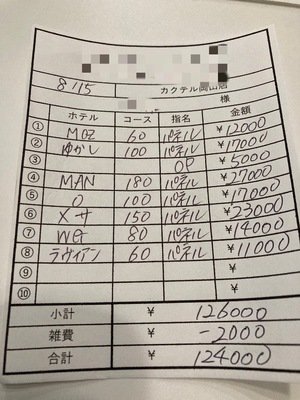 8/15 カクテル岡山店
様
ホテル コース 指名 金額
① MOZ 60 パネル ¥12000
② ゆかし 100 パネル ¥17000
③ OP ¥5000
④ MAN 180 パネル ¥27000
⑤ O 100 パネル ¥17000
⑥ メサ 150 パネル ¥23000
⑦ WG 80 パネル ¥14000
⑧ ラヴィアン 60 パネル ¥11000
⑨ ¥
⑩ ¥
小計 ¥ 126000
雑費 ¥ -2000
合計 ¥ 124000